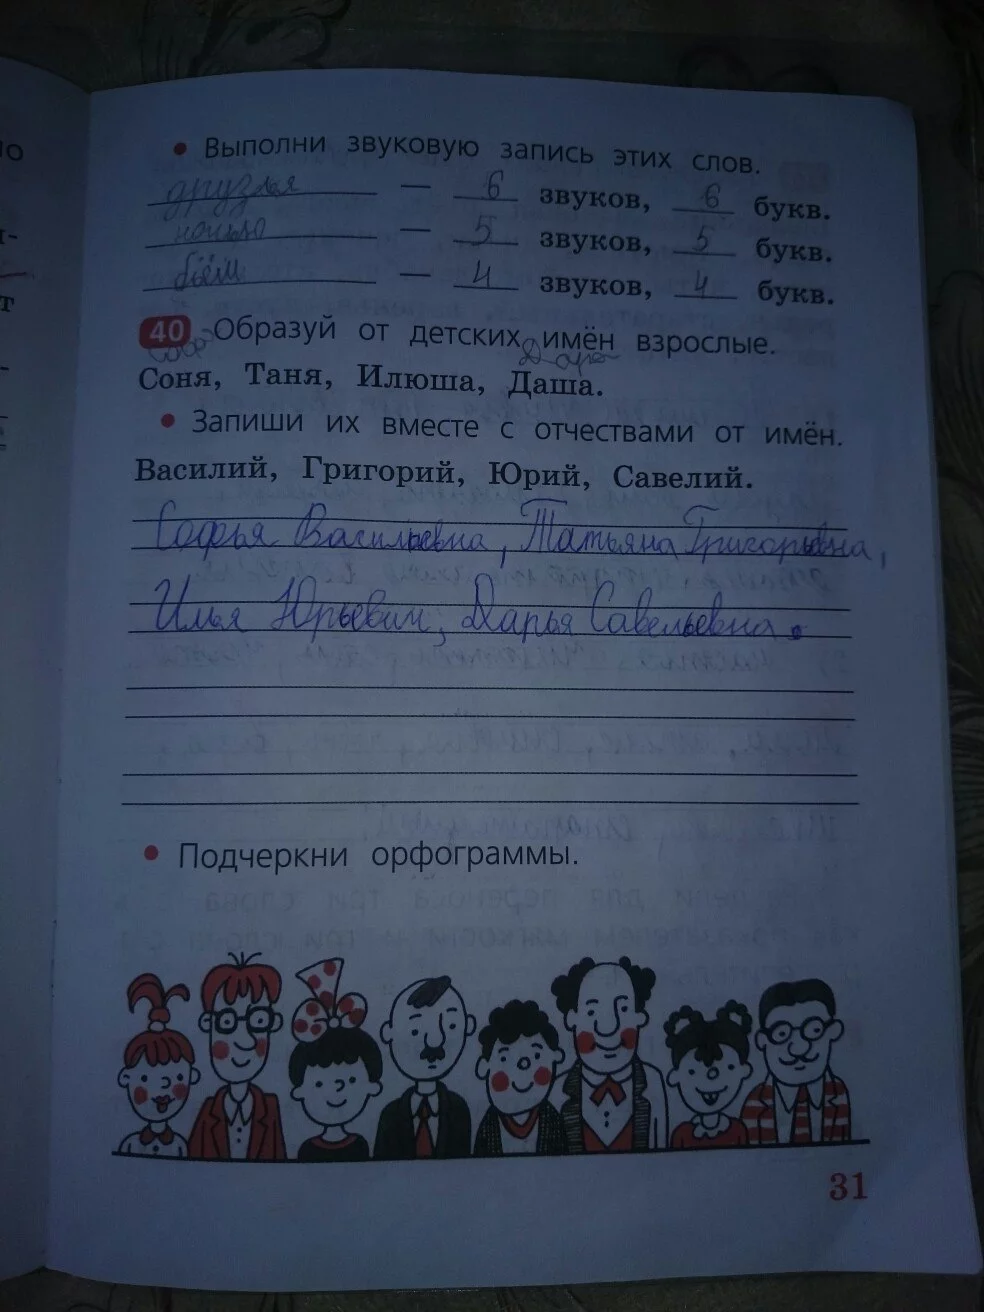 • Выполни звуковую запись этих слов.
друзья — 6 звуков, 6 букв.
ночью — 5 звуков, 5 букв.
бьёш — 4 звуков, 4 букв.
40 Образуй от детских имён взрослые.
Соня, Таня, Илюша, Даша.
• Запиши их вместе с отчествами от имён.
Василий, Григорий, Юрий, Савелий.
Софья Васильевна, Татьяна Григорьевна,
Илья Юрьевич, Дарья Савельевна.
• Подчеркни орфограммы.
31